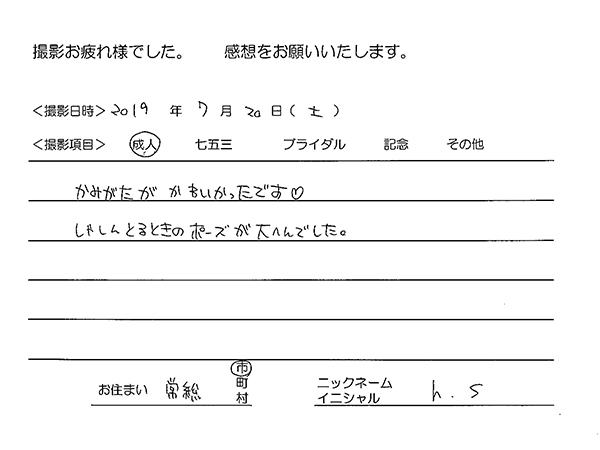 撮影お疲れ様でした。 感想をお願いいたします。
<撮影日時> 2019 年 7 月 20 日 (土)
<撮影項目> 成人 七五三 ブライダル 記念 その他
かみがたが かわいかったです♡
しゃしんとるときの ポーズが 大へんでした。
お住まい 常総 市 町 村
ニックネーム イニシャル h.S